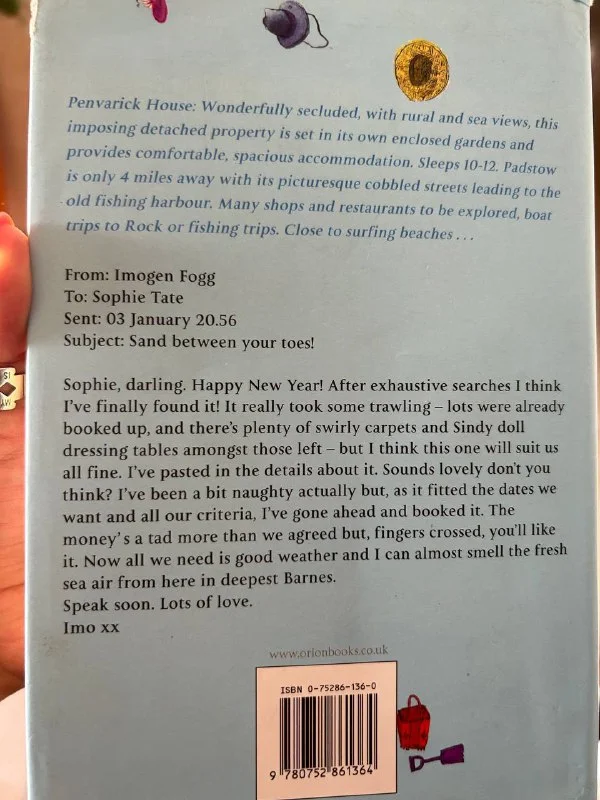 Penvarick House: Wonderfully secluded, with rural and sea views, this
imposing detached property is set in its own enclosed gardens and
provides comfortable, spacious accommodation. Sleeps 10-12. Padstow
is only 4 miles away with its picturesque cobbled streets leading to the
old fishing harbour. Many shops and restaurants to be explored, boat
trips to Rock or fishing trips. Close to surfing beaches . . .
From: Imogen Fogg
To: Sophie Tate
Sent: 03 January 20.56
Subject: Sand between your toes!
Sophie, darling. Happy New Year! After exhaustive searches I think
I've finally found it! It really took some trawling – lots were already
booked up, and there's plenty of swirly carpets and Sindy doll
dressing tables amongst those left – but I think this one will suit us
all fine. I've pasted in the details about it. Sounds lovely don't you
think? I've been a bit naughty actually but, as it fitted the dates we
want and all our criteria, I've gone ahead and booked it. The
money's a tad more than we agreed but, fingers crossed, you'll like
it. Now all we need is good weather and I can almost smell the fresh
sea air from here in deepest Barnes.
Speak soon. Lots of love.
Imo xx
www.orionbooks.co.uk
ISBN 0-75286-136-0
9 780752 861364